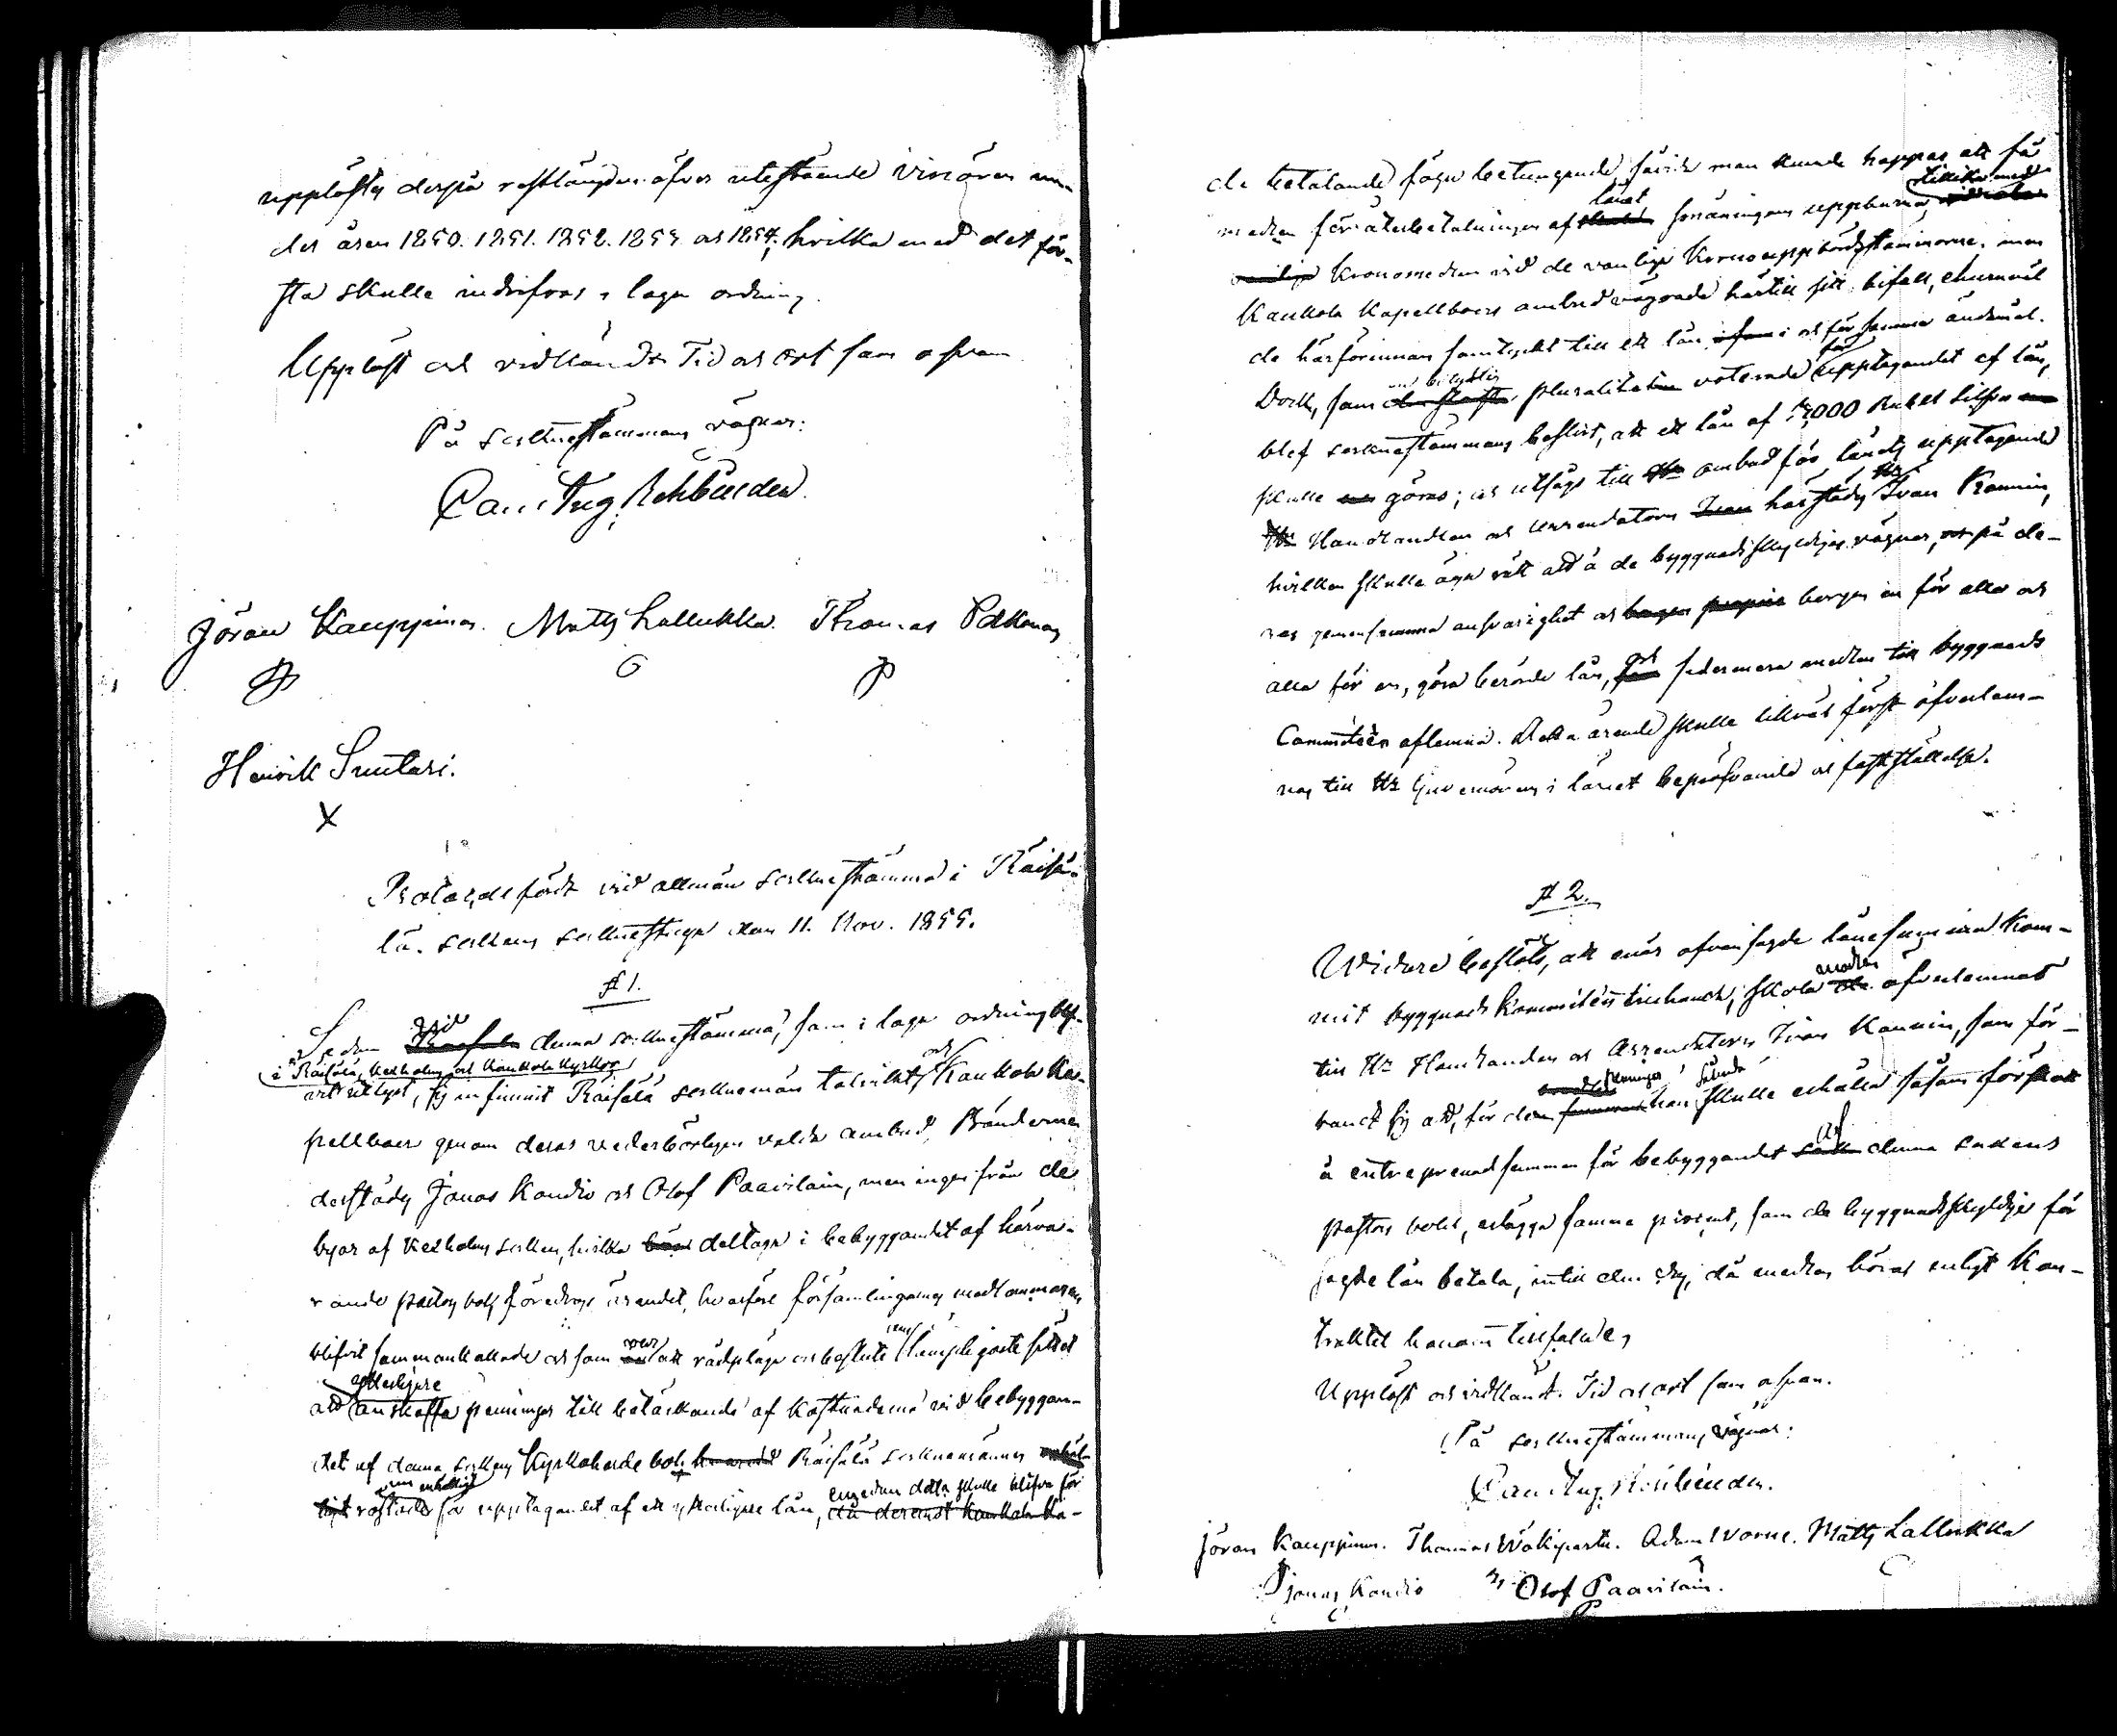 upplästes derpå restlängden öfver utestående viaören un-
der åren 1850. 1851. 1852. 1853 och 1854; hvilka med det för-
sta skulle indrifvas i laga ordning.
Uppläst och vidkändt. Tid och ort som ofvan
På sockne stämmans vägnar:
Carl Aug. Rehbinder.
Jöran Kauppinen. Matts Lallukka. Thomas Pakkanen
Henrik Suutari.
X
Protocoll fördt vid allmän sockne stämma i Räisä-
lä sockens sockne stuga den 11. Nov. 1855.
§ 1.
Sedan vid denna sockne stämma, som i laga ordning bli-
i Räisälä, Kexholms och Kaukola kyrkor
vit utlyst, sig infunnit Räisälä sockne män talrikt och Kaukola Ka-
pellboer genom deras vederbörligen valde ombud, Bönderne
derstädes Jonas Kandio och Olof Paavilain, men ingen från de
byar af Kexholms socken, hvilka böra deltaga i bebyggandet af härva-
rande pastors bol, föredrogs ärendet, hvarföre församlingarnes medlemmar
blifvit sammankallade och som var att rådpläga och besluta om lämpligaste sättet
ytterligare
att anskaffa penningar till betäckande af kostnaderne vid bebyggan-
det af denna sockens Kyrkoherde bol. Räisälä socknemännen
enhälligt enedan detta skulle blifva för
röstade för upptagandet af ett ytterligare lån, då deremot Kaukola Ka-
de betalande föga betungande, såvida man kunde hoppas att få
lånet tillika med
medlen för återbetalningen af församlingens uppburna,
Kronomedlen vid de vanliga Kronouppbördsstämmorne, men
Kaukola Kapellboers ombud vägrade härtill sitt bifall, churuväl
de härförinnan samtyckt till ett lån och för samma ändamål.
en betydlig för
Dock, som pluraliteten voterade upptagandet af lån,
blef socknestämmans beslut, att ett lån af 2,000 Rubel Silfver
skulle göras; och utsågs till ombud för lånets upptagande
Handlanden och Arrendatorn härstädes Hr Ivan Kannin,
hvilken skulle äga rätt att å de byggnadsskyldiges vägnar, på de-
ras gemensamma ansvarighet och borgen en för alla och
alla för en, göra berörde lån, och sedermera medlen till byggnads
Committéen aflemna. Detta ärende skulle likväl först öfverlem-
nas till Hr Guvernörens i länet bepröfvande och fastställelse.
§ 2.
Widare beslöts, att enär ofvansagde lånesumma kom-
medlen
mit byggnads Kommitéens tillhanda, skola öfverlemnas
till Hr Handlanden och Arrendatorn Ivan Kannin, som för-
penningar sålunda
band sig att, för de han skulle erhålla såsom förskott
å entreprenad summan för bebyggandet af denna sockens
pastors bol, erlägga samma procent, som de byggnadsskyldige för
sagde lån betala, intill den dag, då medlen böra enligt Kon-
traktet honom tillfalla.
Uppläst och vidkändt. Tid och ort som ofvan.
På sockne stämmans vägnar:
Carl Aug. Rehbinder.
Jöran Kauppinen. Thomas Wäkiparta. Adam Worne. Matts Lallukka
Jonas Kandio Olof Paavilain.